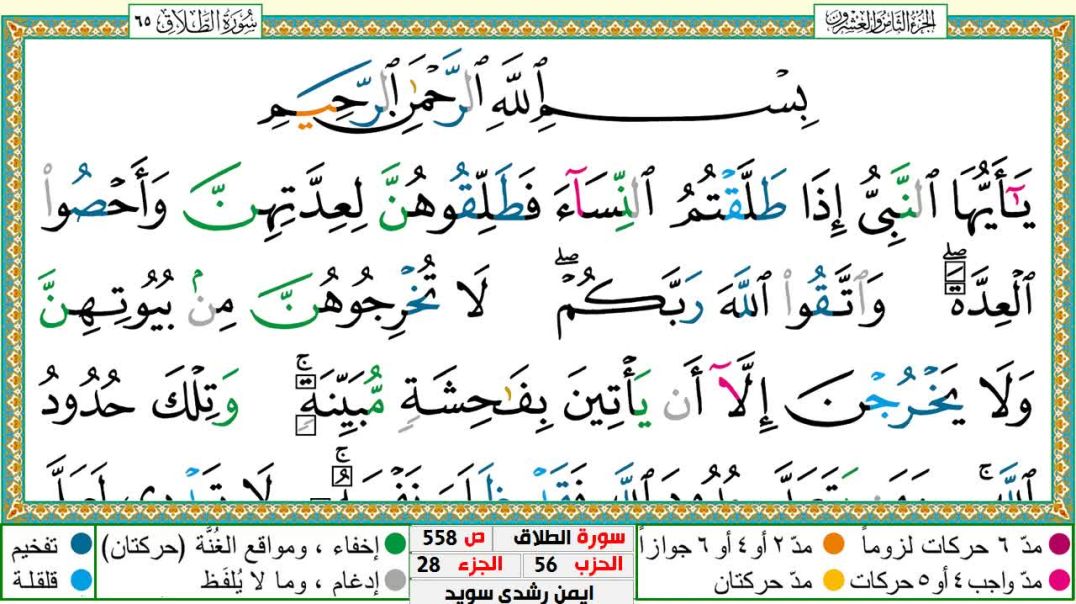 الجزء الثامن والعشرون
سُورَةُ الطَّلَاقِ ٦٥
بِسْمِ ٱللَّهِ ٱلرَّحْمَٰنِ ٱلرَّحِيمِ
يَٰٓأَيُّهَا ٱلنَّبِىُّ إِذَا طَلَّقْتُمُ ٱلنِّسَآءَ فَطَلِّقُوهُنَّ لِعِدَّتِهِنَّ وَأَحْصُوا۟
ٱلْعِدَّةَ ۖ وَٱتَّقُوا۟ ٱللَّهَ رَبَّكُمْ ۖ لَا تُخْرِجُوهُنَّ مِنۢ بُيُوتِهِنَّ
وَلَا يَخْرُجْنَ إِلَّآ أَن يَأْتِينَ بِفَٰحِشَةٍ مُّبَيِّنَةٍ ۚ وَتِلْكَ حُدُودُ
ٱللَّهِ ۚ وَمَن يَتَعَدَّ حُدُودَ ٱللَّهِ فَقَدْ ظَلَمَ نَفْسَهُۥ ۚ لَا تَدْرِى لَعَلَّ
مدّ ٦ حركات لزوماً مدّ ٢ أو ٤ أو ٦ جوازاً
مدّ واجب ٤ أو ٥ حركات مدّ حركتان
سورة الطلاق ص 558
الحزب 56 الجزء 28
ايمن رشدي سويد
إخفاء ، ومواقع الغُنَّة (حركتان) تفخيم
إدغام ، وما لا يُلفَظ قلقلة